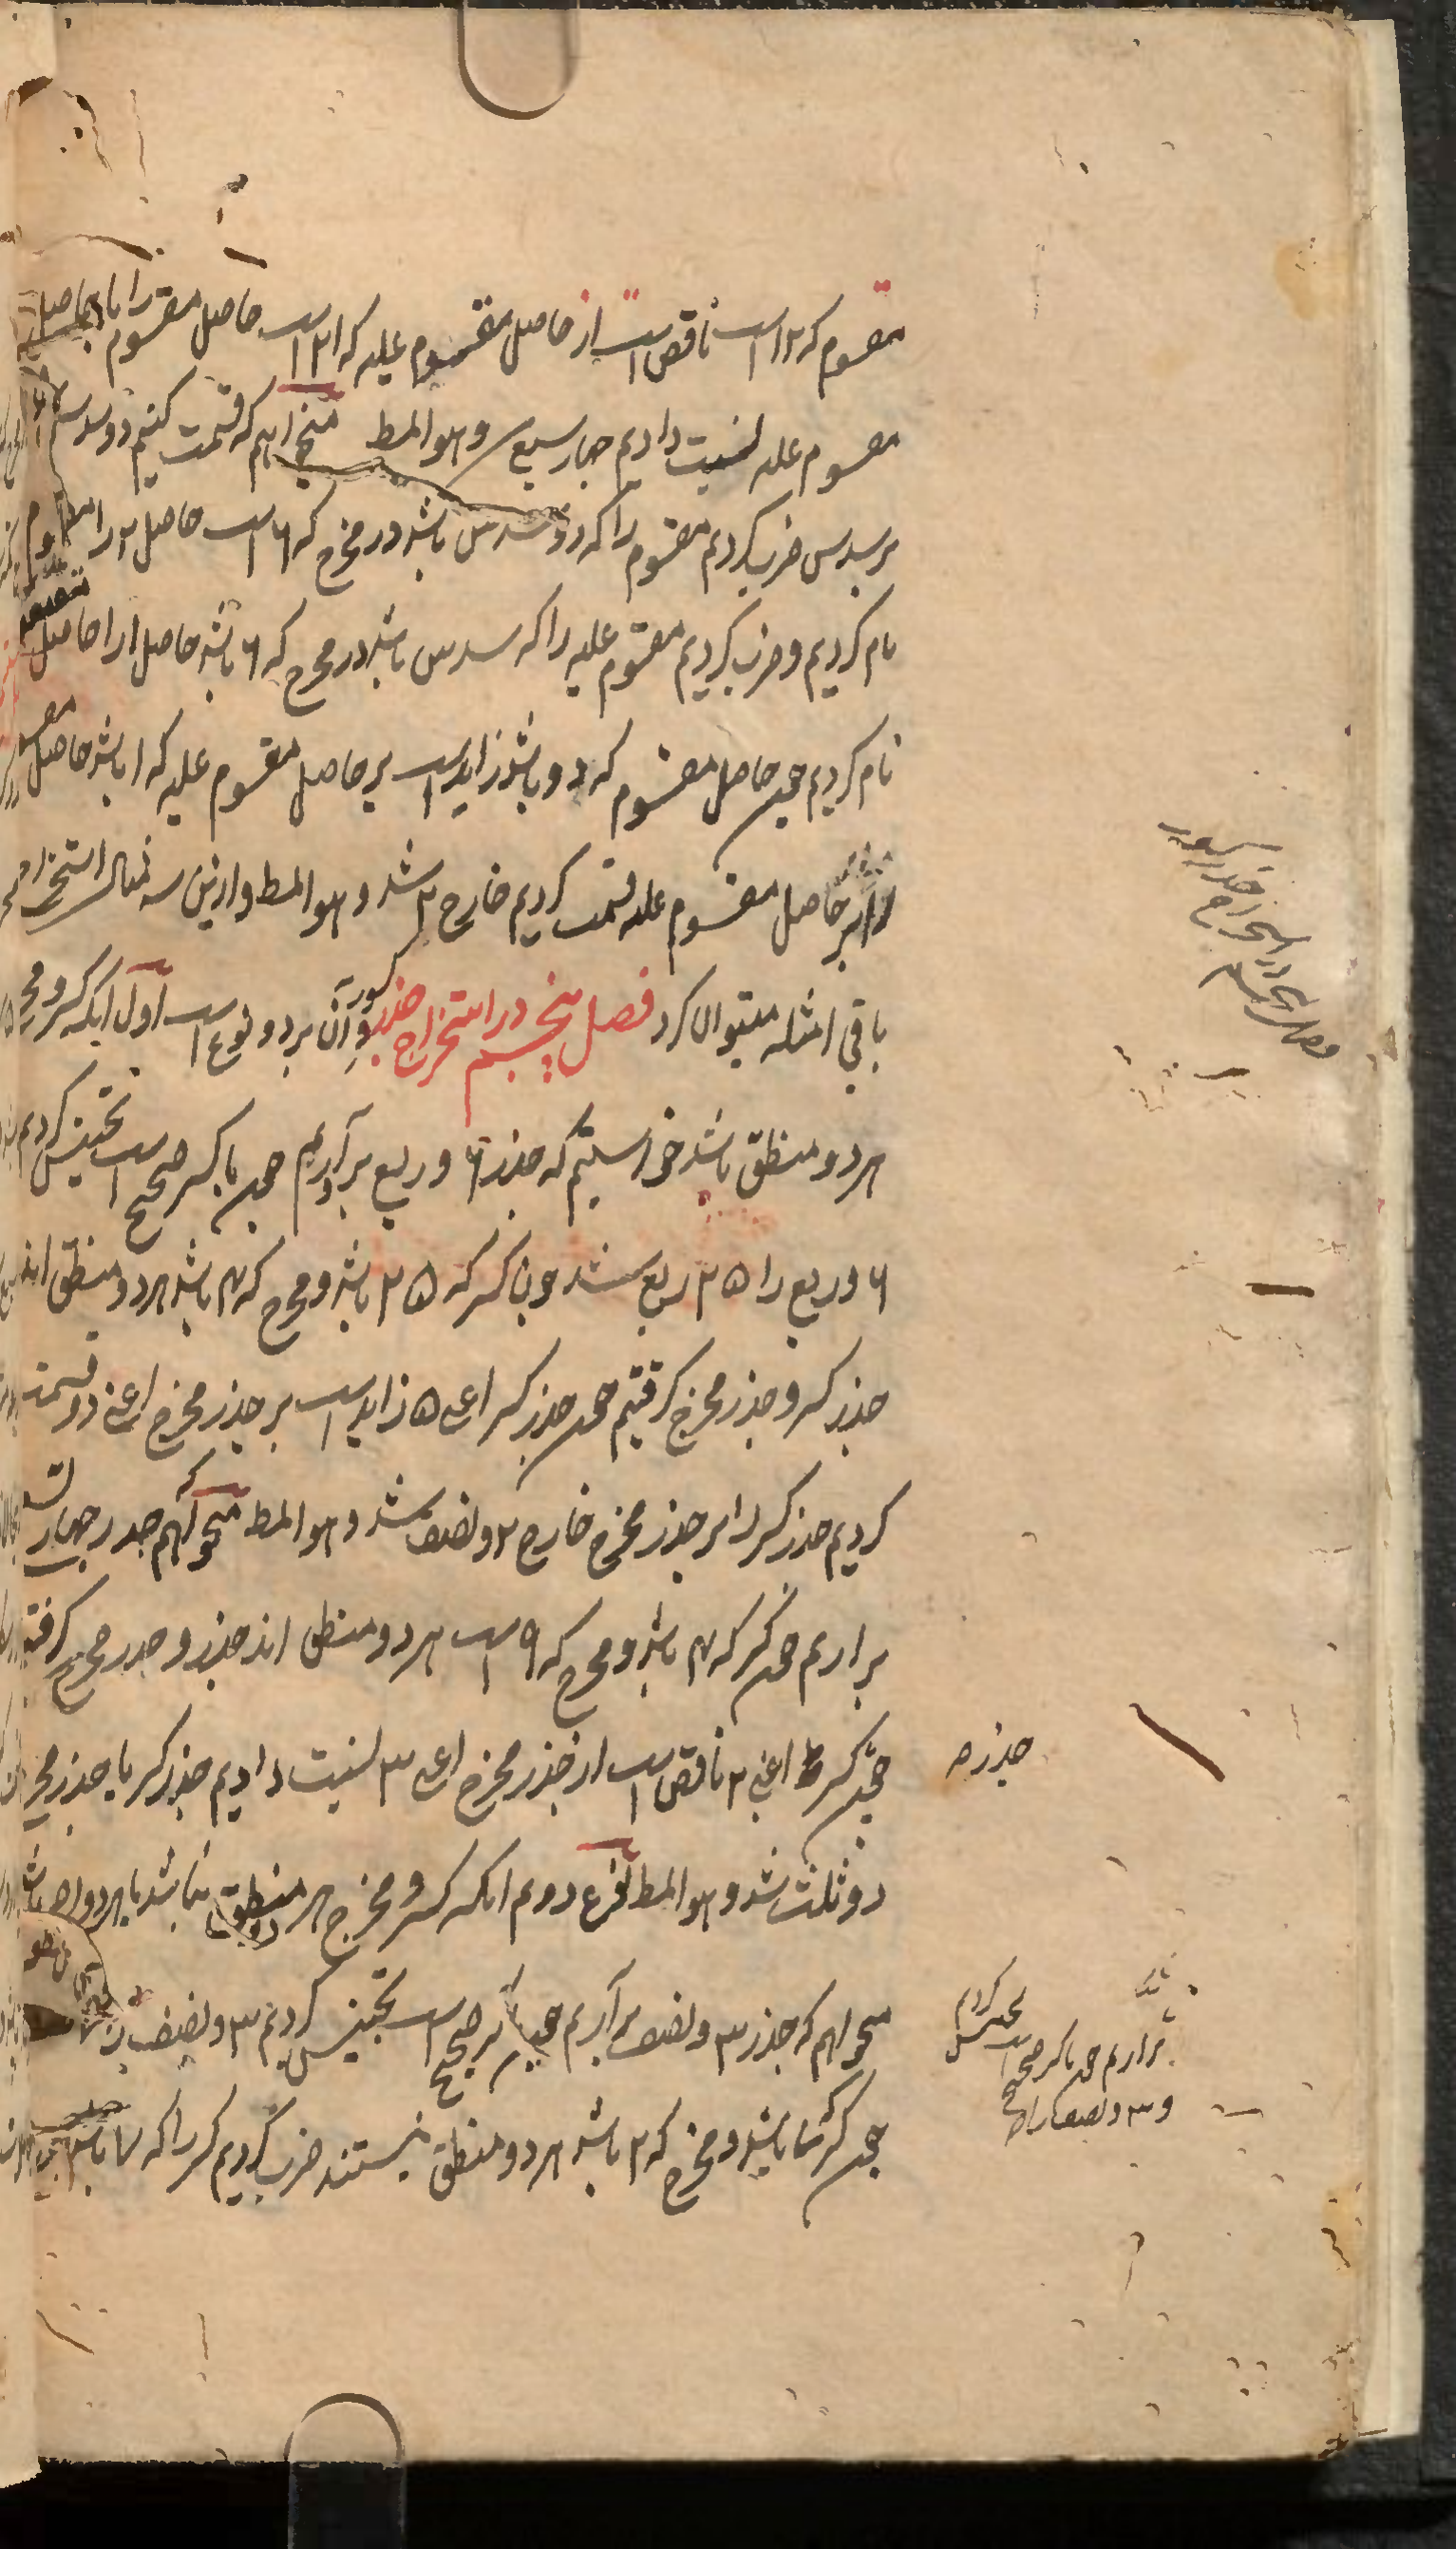 مقسوم که ۱۲ است ناقص است از حاصل مقسوم علیه که ۲۱ است حاصل مقسوم را با حاصل
مقسوم علیه نسبت دادیم چهار سبع و هو المط میخواهم که قسمت کنیم دو سدس
بر سدس ضرب کردیم مقسوم را که دو سدس باشد در مخرج که ۶ است حاصل ۲ را
نام کردیم و ضرب کردیم مقسوم علیه را که سدس باشد در مخرج که ۶ باشد حاصل ا را حاصل
نام کردیم چون حاصل مقسوم که دو باشد زاید است بر حاصل مقسوم علیه که ا باشد حاصل
را بر حاصل مقسوم علیه قسمت کردیم خارج ۲ شد و هو المط و ازین سه مثال استخراج
باقی امثله میتوان کرد فصل پنجم در استخراج جذر کسور و آن بر دو نوع است اول آنکه کسر و مخرج
هر دو منطق باشد خواستیم که جذر ۶ و ربع برآریم چون با کسر صحیح است تجنیس کردیم
۶ و ربع را ۲۵ ربع شد چون کسر که ۲۵ باشد و مخرج که ۴ باشد هر دو منطق اند
جذر کسر و جذر مخرج گرفتیم چون جذر کسر اعنی ۵ زاید است بر جذر مخرج اعنی دو قسمت
کردیم جذر کسر را بر جذر مخرج خارج ۲ و نصف شد و هو المط میخواهم که جذر چهار تسع
برآریم چون کسر که ۴ باشد و مخرج که ۹ است هر دو منطق اند جذر و جذر مخرج گرفتیم
چون کسر اعنی ۲ ناقص است از جذر مخرج اعنی ۳ نسبت دادیم جذر کسر با جذر مخرج
دو ثلث شد و هو المط نوع دوم آنکه کسر و مخرج هر دو منطق نباشد یا هر دو
میخواهم که جذر ۳ و نصف برآریم چون با کسر صحیح است تجنیس کردیم ۳ و نصف
چون کسر ۷ باشد و مخرج که ۲ باشد هر دو منطق نیستند ضرب کردیم کسر را که ۷ باشد
فصل پنجم در استخراج جذر کسور
جذر
برآریم چون با کسر صحیح است تجنیس کردیم
و ۳ و نصف را